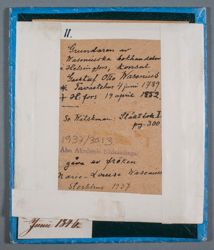 11.
Grundaren av
Waseniuska bokhandeln
Helsingfors, konsul
Gustaf Otto Wasenius
* Tavastehus 7 juni 1789
† H:fors 19 april 1852
Se Wilskman: Släktbok I
pg. 300
1937/3013
Åbo Akademis bildsamlingar
gåva av fröken
Marie-Louise Wasenius
1937
Juni 1846.